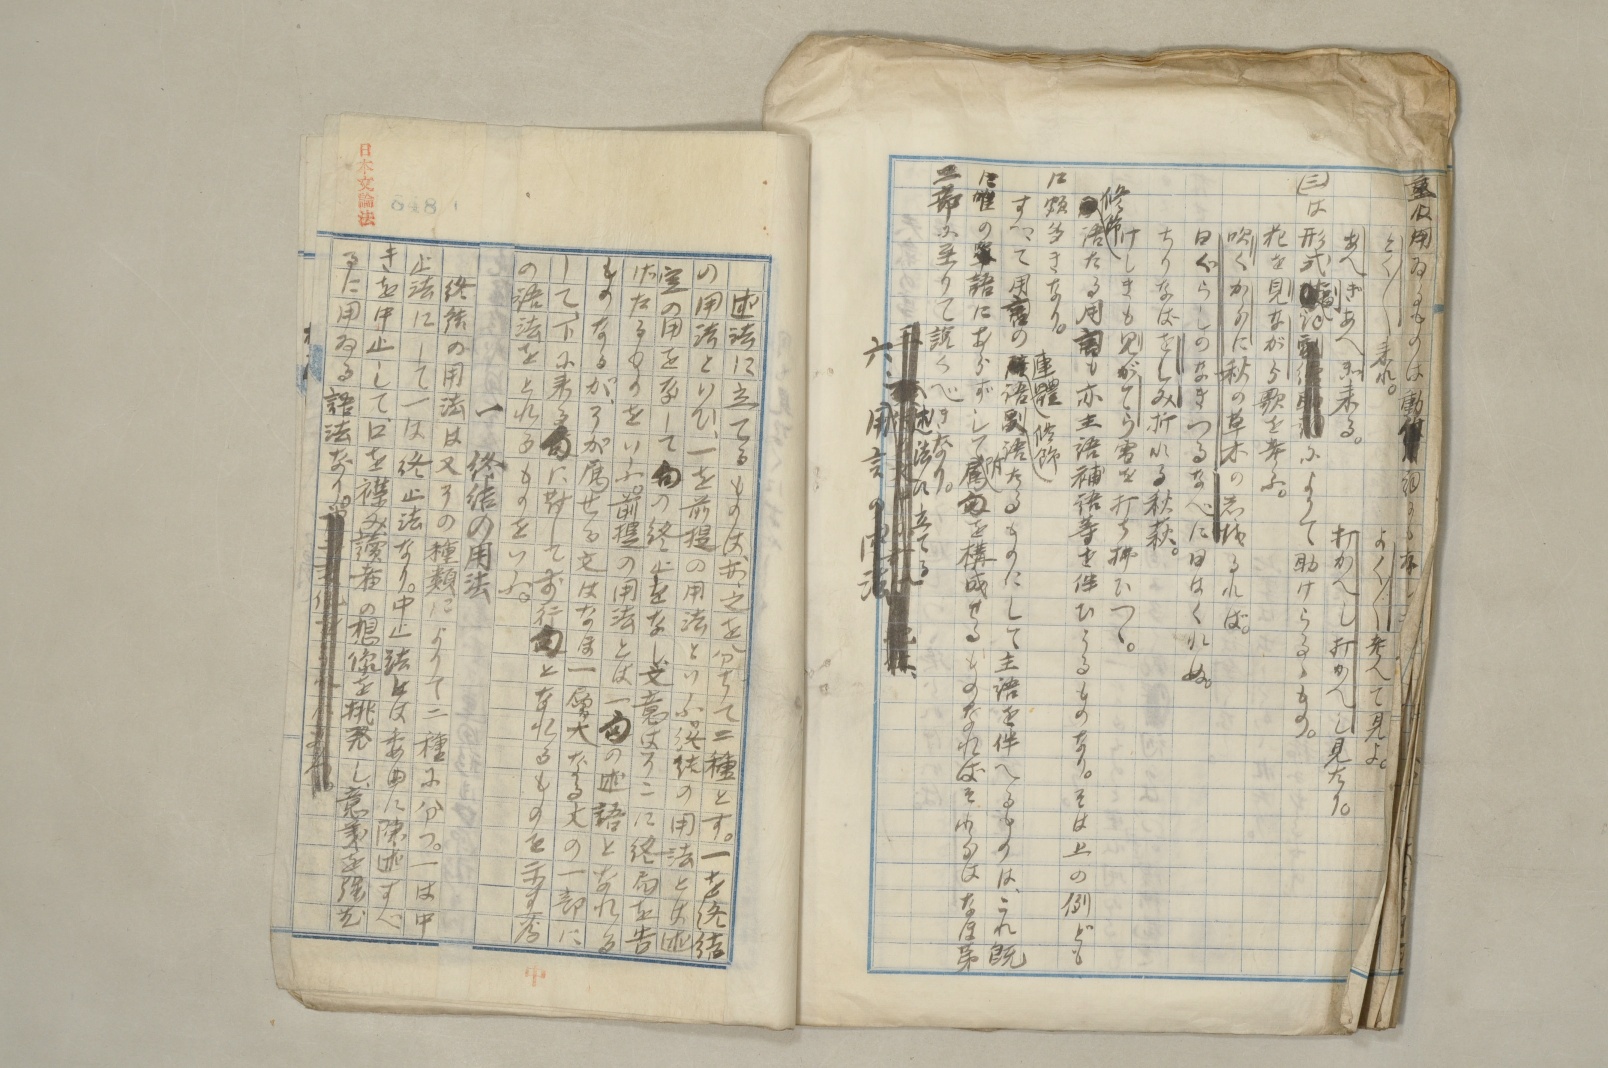 重ね用ゐるものは動
とく〳〵来れ。 よく〳〵考へて見よ。
あへぎあへぎ来る。 打かへし打かへし見たり。
(三)は形式によりて助けらるゝもの。
花を見ながら歌を考ふ。
吹くからに秋の草木の志をるれば。
日ぐらしのなきつるなべに日はくれぬ。
ちりなばをしみ折れる秋萩。
けしきも見がてら雪を打ち拂ひつゝ。
修飾語たる用言も亦主語補語等を伴ひうるものなり。そは上の例ども
に頗多きなり。
すべて用言の連體語修飾語たるものにして主語を伴へるものは、これ既
に唯の語にあらずして附属句を構成せるものなればそれらはなほ第
二部に至りて説くべきなり。
述法に立てる
六、用言の用法
日本文論法
述法に立てるものは、亦之を分ちて二種とす。一を終結
の用法といひ、一を前提の用法といふ。終結の用法とは述
定の用をなして句の終止をなし、文意はそこに終局を告
げたるものをいふ。前提の用法とは一句の述語となれる
ものなるが、そが属せる文はなほ一層大なる文の一部に
して、下に来る句に対して前行句となれるものを示す為
の語法をとれるものをいふ。
一 終結の用法
終結の用法は又その種類によりて二種に分つ。一は中
止法にして一は終止法なり。中止法とは委曲に陳述すべ
きを中止して、口を襟み讀者の想像を挑発し、意義を強む
るに用ゐる語法なり。
中